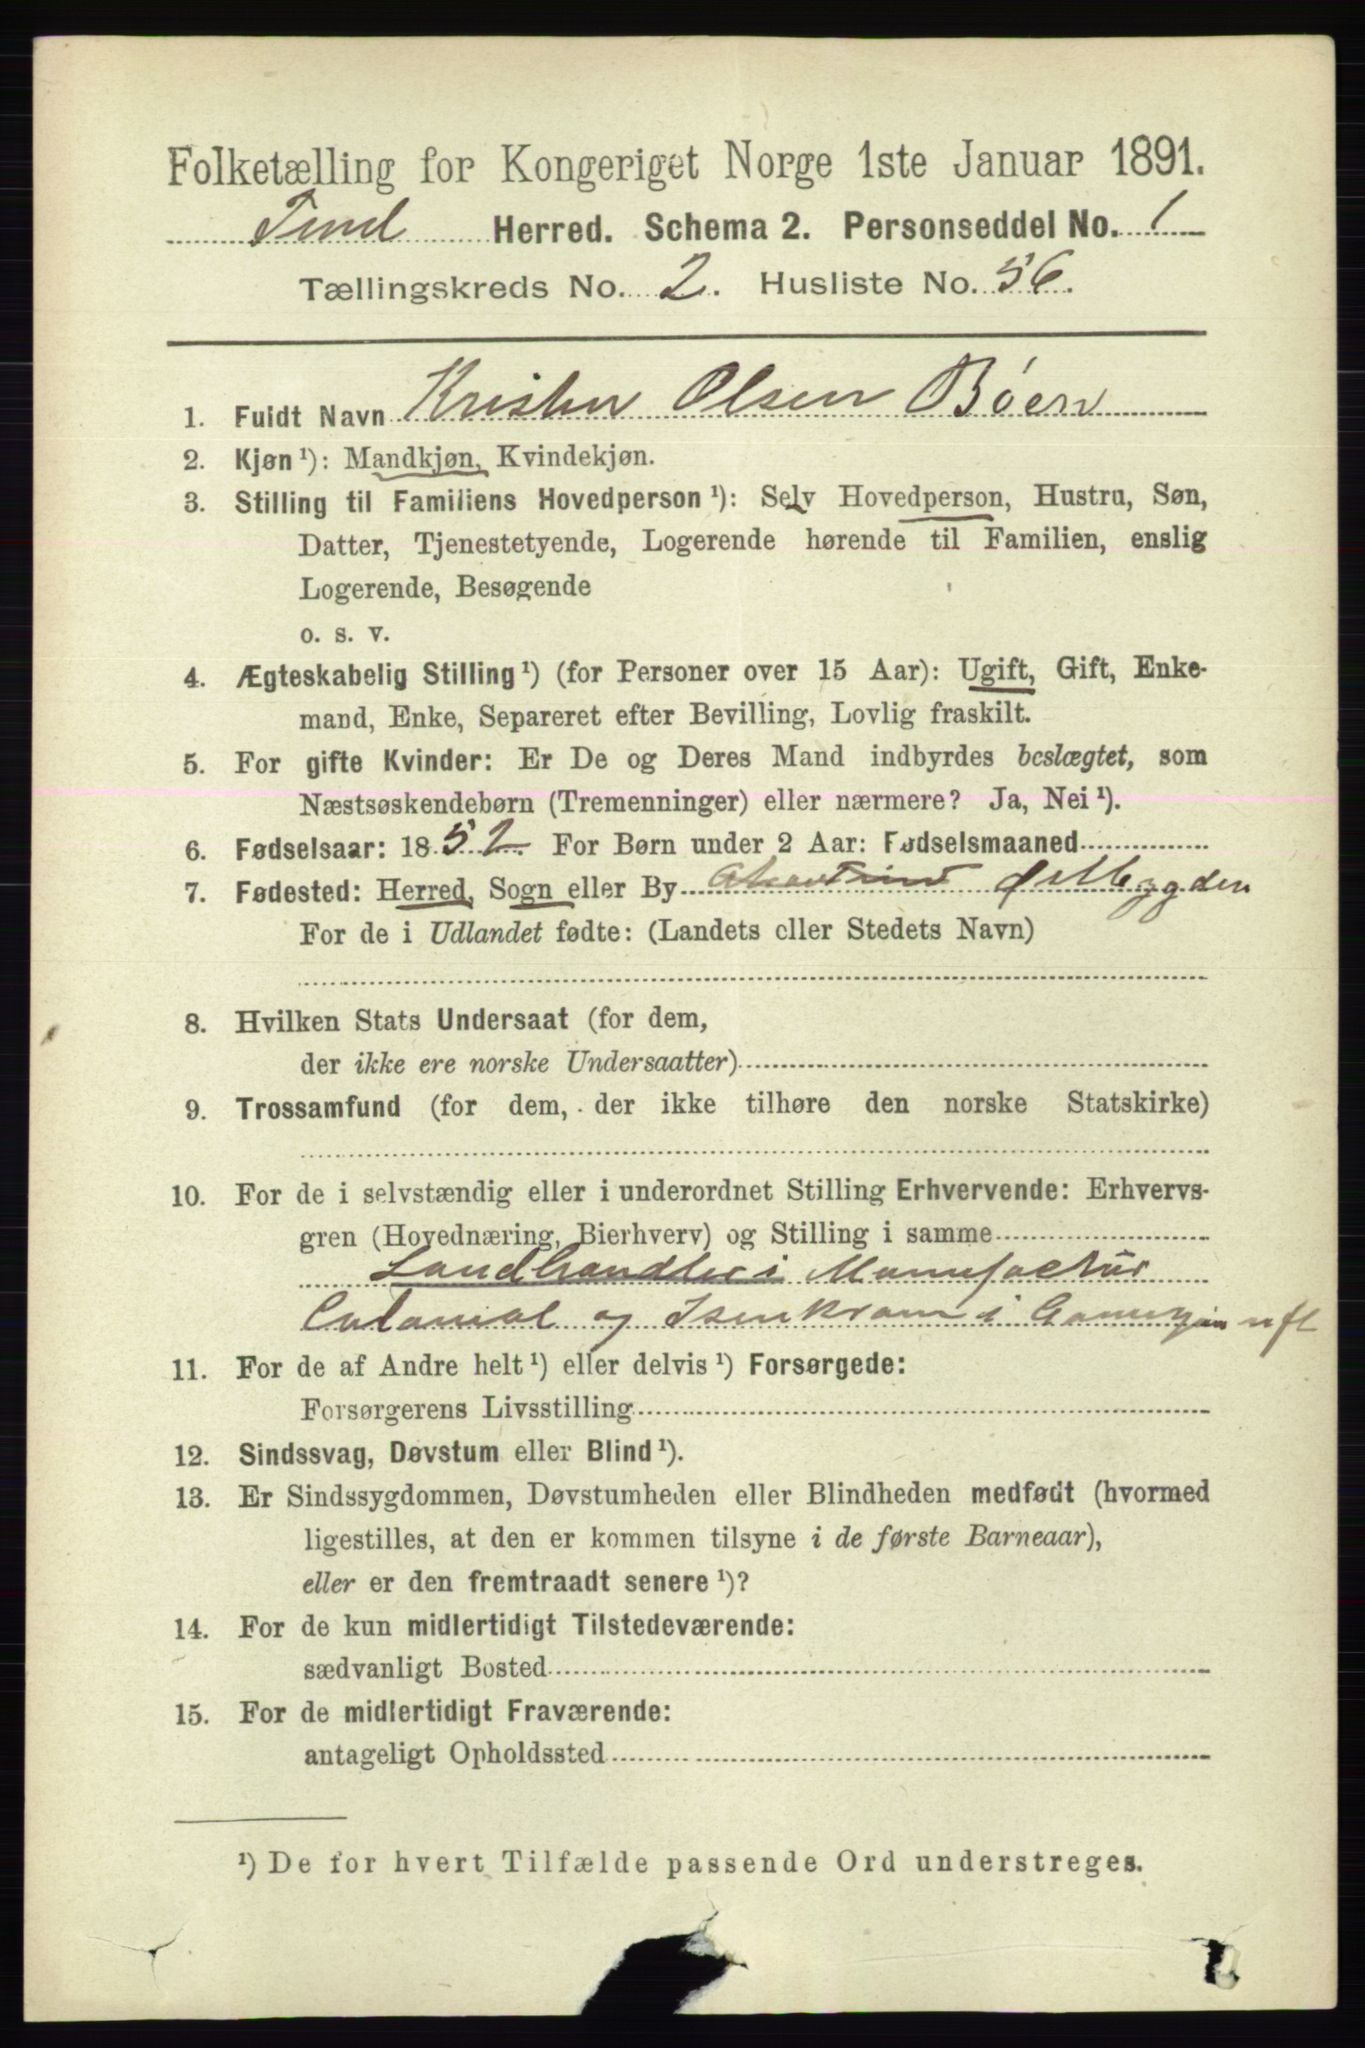 Folketælling for Kongeriget Norge 1ste Januar 1891.
Tind Herred. Schema 2. Personseddel No. 1
Tællingskreds No. 2. Husliste No. 56.
1. Fuldt Navn Kristen Olsen Bøen
2. Kjøn ¹): Mandkjøn, Kvindekjøn.
3. Stilling til Familiens Hovedperson ¹): Selv Hovedperson, Hustru, Søn,
Datter, Tjenestetyende, Logerende hørende til Familien, enslig
Logerende, Besøgende
o. s. v.
4. Ægteskabelig Stilling ¹) (for Personer over 15 Aar): Ugift, Gift, Enke-
mand, Enke, Separeret efter Bevilling, Lovlig fraskilt.
5. For gifte Kvinder: Er De og Deres Mand indbyrdes beslægtet, som
Næstsøskendebørn (Tremenninger) eller nærmere? Ja, Nei ¹).
6. Fødselsaar: 1852. For Børn under 2 Aar: Fødselsmaaned
7. Fødested: Herred, Sogn eller By Østbygden
For de i Udlandet fødte: (Landets eller Stedets Navn)
8. Hvilken Stats Undersaat (for dem,
der ikke ere norske Undersaatter)
9. Trossamfund (for dem, der ikke tilhøre den norske Statskirke)
10. For de i selvstændig eller i underordnet Stilling Erhvervende: Erhvervs-
gren (Hovednæring, Bierhverv) og Stilling i samme
Landhandler i Manufactur
Colonial og Isenkram i
11. For de af Andre helt ¹) eller delvis ¹) Forsørgede:
Forsørgerens Livsstilling
12. Sindssvag, Døvstum eller Blind ¹).
13. Er Sindssygdommen, Døvstumheden eller Blindheden medfødt (hvormed
ligestilles, at den er kommen tilsyne i de første Barneaar),
eller er den fremtraadt senere ¹)?
14. For de kun midlertidigt Tilstedeværende:
sædvanligt Bosted
15. For de midlertidigt Fraværende:
antageligt Opholdssted
¹) De for hvert Tilfælde passende Ord understreges.